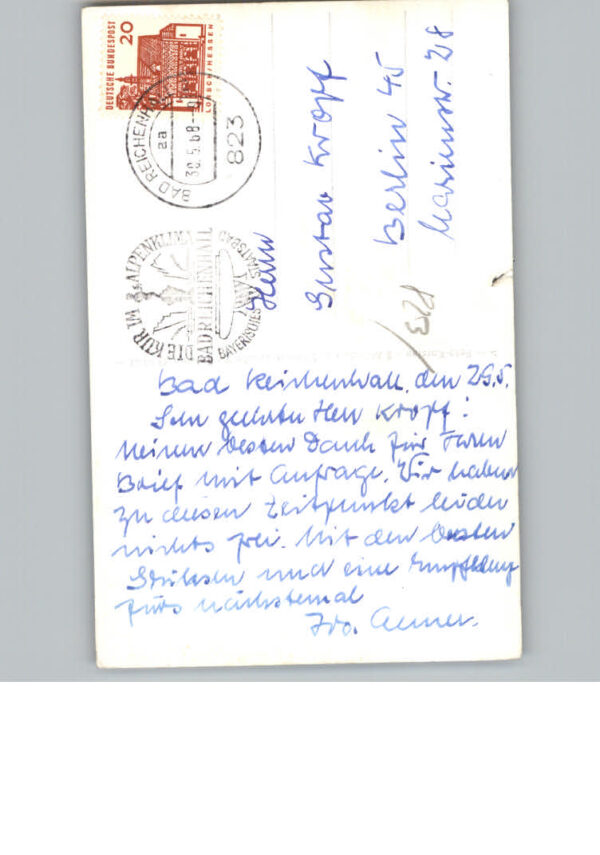 DEUTSCHE BUNDESPOST
20
LORSCH/HESSEN
BAD REICHENHALL
aa
30.5.68
823
DIE KUR IM ALPENKLIMA
BAD REICHENHALL
BAYERISCHES STAATSBAD
Herrn
Gustav Kropf
Berlin 45
Marienstr. 28
Bad Reichenhall, den 29.5.
Sehr geehrter Herr Kropf!
Meinen besten Dank für Ihren
Brief mit Anfrage. Wir haben
zu diesem Zeitpunkt leider
nichts frei. Mit den besten
Grüssen und eine Empfehlung
fürs nächstemal